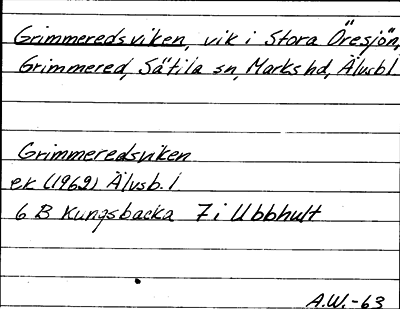 Grimmeredsviken, vik i Stora Öresjön,
Grimmered, Sätila sn, Marks hd, Älvsb l
Grimmeredsviken
ek (1962) Älvsb. l
6 B Kungsbacka 7 i Ubbhult
A.W.-63